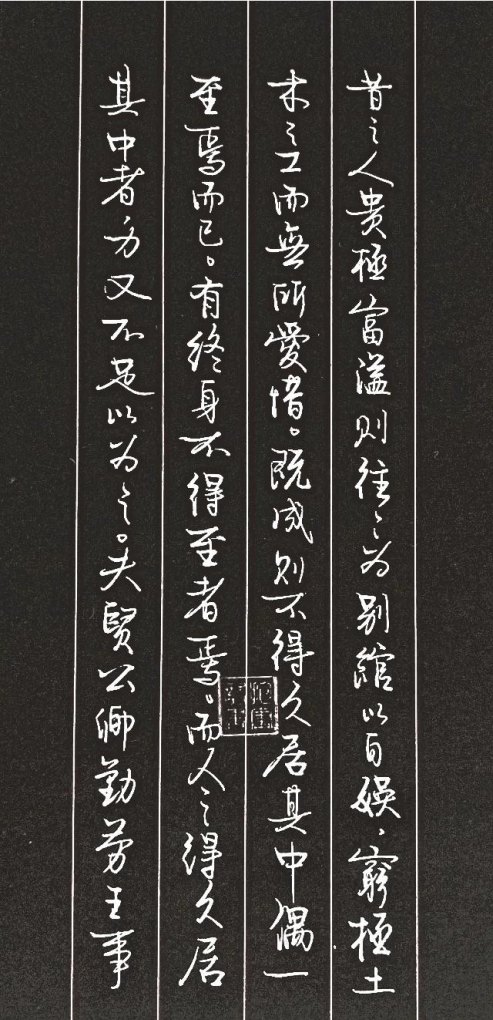 昔之人貴極富溢則往々為別館以自娛、窮極土
木之工而無所愛惜。既成則不得久居其中偶一
至焉而已。有終身不得至者焉。而人之得久居
其中者力又不足以為之。夫賢公卿勤勞王事